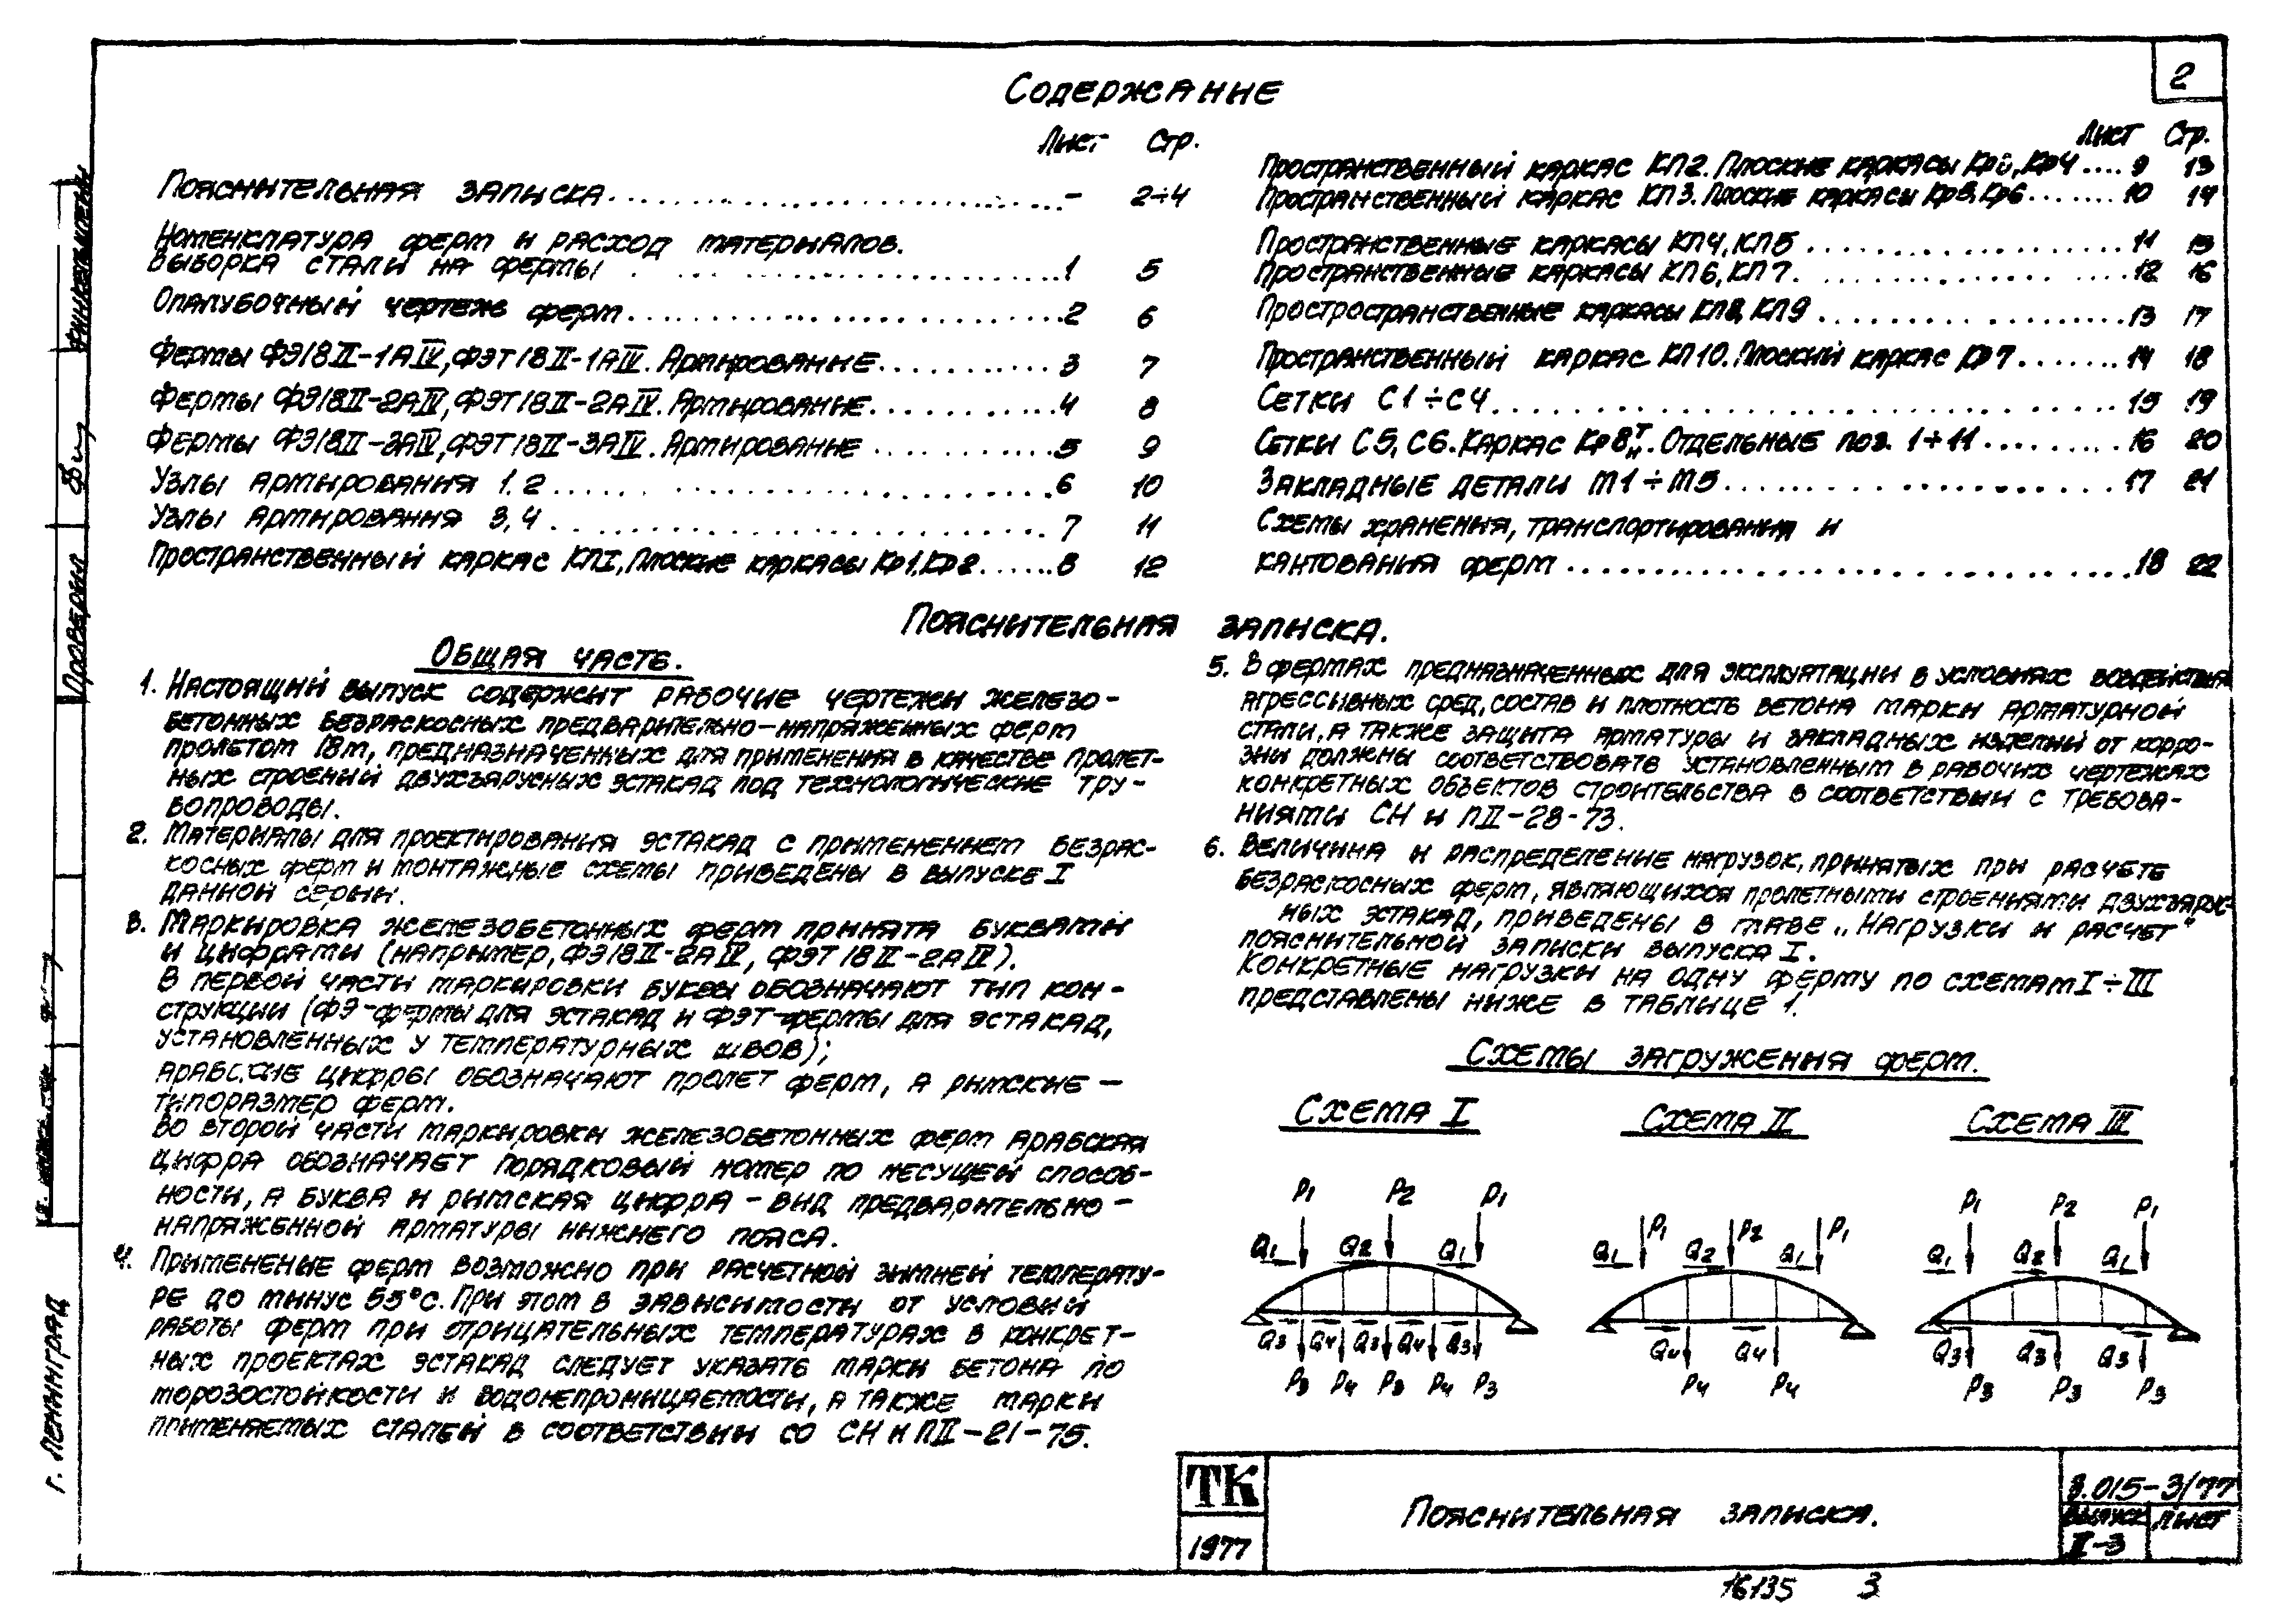 2
Содержание
Лист Стр.
Пояснительная записка ........ – 2÷4
Номенклатура ферм и расход материалов.
Выборка стали на фермы ........ 1 5
Опалубочный чертеж ферм ........ 2 6
Фермы ФЭ18II-1АIV, ФЭТ18II-1АIV. Армирование ........ 3 7
Фермы ФЭ18II-2АIV, ФЭТ18II-2АIV. Армирование ........ 4 8
Фермы ФЭ18II-3АIV, ФЭТ18II-3АIV. Армирование ........ 5 9
Узлы армирования 1.2 ........ 6 10
Узлы армирования 3,4 ........ 7 11
Пространственный каркас КПI, Плоские каркасы Кр1, Кр2 ...... 8 12
Лист Стр.
Пространственный каркас КП2. Плоские каркасы Кр4 .... 9 13
Пространственный каркас КП3. Плоские каркасы Кр5, Кр6 ....... 10 14
Пространственные каркасы КП4, КП5 ........ 11 15
Пространственные каркасы КП6, КП7 ........ 12 16
Простространственные каркасы КП8, КП9 ........ 13 17
Пространственный каркас КП10. Плоский каркас Кр7 ....... 14 18
Сетки С1÷С4 ........ 15 19
Сетки С5, С6. Каркас Кр8тн. Отдельные поз. 1÷11 ........ 16 20
Закладные детали М1÷М5 ........ 17 21
Схемы хранения, транспортирования и
кантования ферм ........ 18 22
Пояснительная записка.
Общая часть.
1. Настоящий выпуск содержит рабочие чертежи железо-
бетонных безраскосных предварительно-напряженных ферм
пролетом 18м, предназначенных для применения в качестве пролет-
ных строений двухъярусных эстакад под технологические тру-
бопроводы.
2. Материалы для проектирования эстакад с применением безрас-
косных ферм и монтажные схемы приведены в выпуске I
данной серии.
3. Маркировка железобетонных ферм принята буквами
и цифрами (например, ФЭ18II-2АIV, ФЭТ18II-2АIV).
В первой части маркировки буквы обозначают тип кон-
струкции (ФЭ-фермы для эстакад и ФЭТ-фермы для эстакад,
установленных у температурных швов);
арабские цифры обозначают пролет ферм, а римские –
типоразмер ферм.
Во второй части маркировки железобетонных ферм арабская
цифра обозначает порядковый номер по несущей способ-
ности, а буква и римская цифра – вид предварительно-
напряженной арматуры нижнего пояса.
4. Применение ферм возможно при расчетной зимней температу-
ре до минус 55°С. При этом в зависимости от условий
работы ферм при отрицательных температурах в конкрет-
ных проектах эстакад следует указать марки бетона по
морозостойкости и водонепроницаемости, а также марки
применяемых сталей в соответствии со СН и ПII-21-75.
5. В фермах предназначенных для эксплуатации в условиях воздействия
агрессивных сред, состав и плотность бетона марки арматурной
стали, а также защита арматуры и закладных изделий от корро-
зии должны соответствовать установленным в рабочих чертежах
конкретных объектов строительства в соответствии с требова-
ниями СН и ПII-28-73.
6. Величина и распределение нагрузок, принятых при расчете
безраскосных ферм, являющихся пролетными строениями двухъярус-
ных эстакад, приведены в главе „Нагрузки и расчет"
пояснительной записки выпуска I.
Конкретные нагрузки на одну ферму по схемам I÷III
представлены ниже в таблице 1.
Схемы загружения ферм.
Схема I Схема II Схема III
P1 P2 P1
Q1 Q2 Q1
Q3 Q4 Q3 Q4 Q3
P3 P4 P3 P4 P3
P1 P2 P1
Q1 Q2 Q1
Q4 Q4
P4 P4
P1 P2 P1
Q1 Q2 Q1
Q3 Q3 Q3
P3 P3 P3
ТК
1977
Пояснительная записка.
3.015-3/77
выпуск лист
II-3
16135 3
Проверил
г. Ленинград